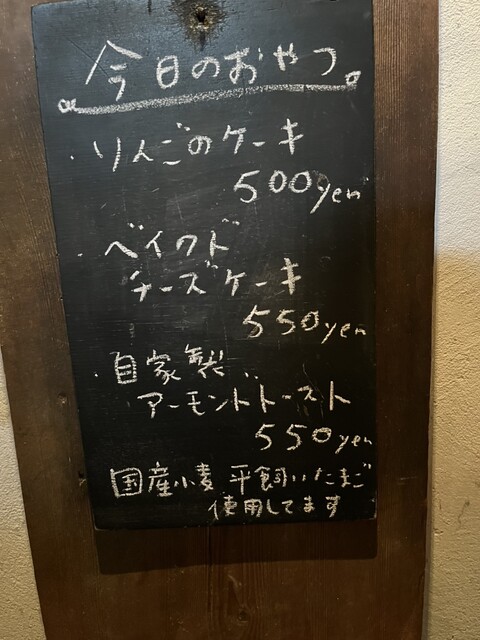 今日のおやつ
・りんごのケーキ
500yen
・ベイクド
チーズケーキ
550yen
・自家製
アーモンドトースト
550yen
国産小麦 平飼いたまご
使用してます